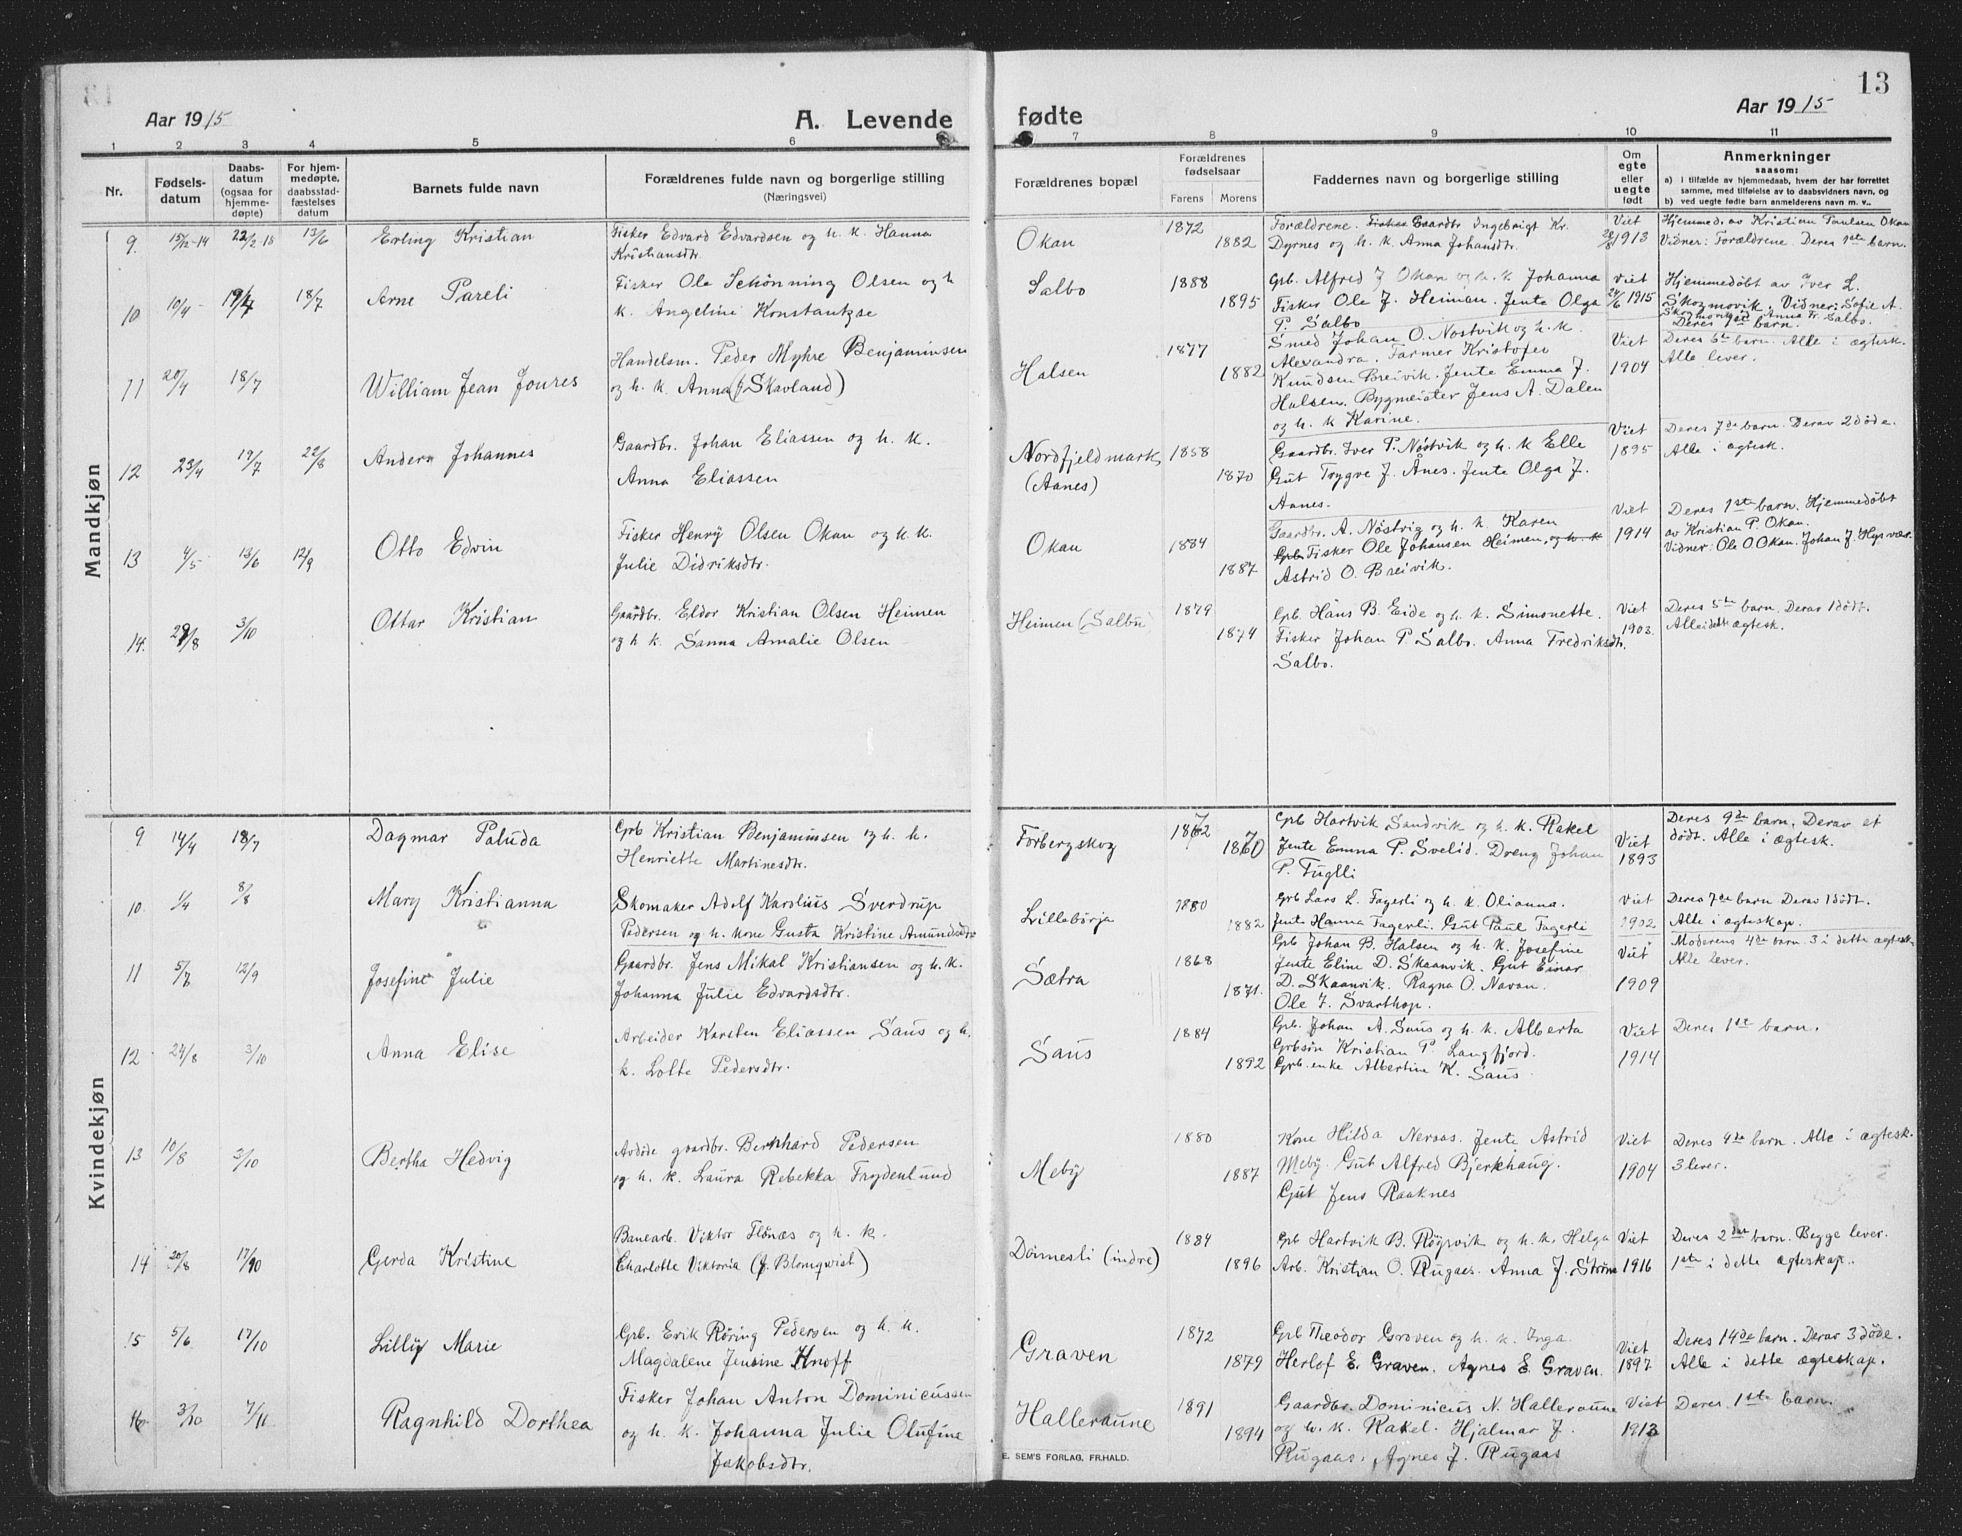 Aar 1915
A. Levende fødte
Aar 1915
13
1 2 3 4 5 6 7 8 9 10 11
Nr.
Fødsels-
datum
Daabs-
datum
(ogsaa for
hjemme-
døpte)
For hjem-
medøpte,
daabsstad-
fæstelses
datum
Barnets fulde navn
Forældrenes fulde navn og borgerlige stilling
(Næringsvei)
Forældrenes bopæl
Forældrenes
fødselsaar
Farens Morens
Faddernes navn og borgerlige stilling
Om
egte
eller
uegte
født
Anmerkninger
saasom:
a) i tilfælde av hjemmedaab, hvem der har forrettet
samme, med tilføielse av to daabsvidners navn, og
b) ved uegte fødte barn anmelderens navn m. v..
Mandkjøn
9. 15/12-14 22/2-15 13/6 Erling Kristian
Fisker Edvard Edvardsen og h. k. Hanna
Kristiansdtr.
Okan 1872 1882
Forældrene. Gaardbr Ingebrigt Kr.
Dyrnes og h. k. Anna Johansdtr.
Viet
1913
Hjemmed. av Kristian Paulsen Okan
Vidner: Forældrene. Deres 1ste barn.
10 10/4 19/4 18/7 Arne Pareli
Fisker Ole Schönning Olsen og h
k. Angeline Konstantzse
Salbo 1888 1895
Grb. Alfred J Okan og h. k Johanna
Fisker Ole J. Heiman. Jente Olga
P. Salbo
Viet
24/6 1915
Hjemmedøbt av Iver L.
Skogmovik. Vidner: Sofie A.
Skogmovik og Anna Fr. Salbo.
Deres 1ste barn.
11 20/4 18/7 William Jean Joures
Handelsm. Peder Myhre Benjaminsen
og h. k. Anna (f. Skavland)
Halsen 1877 1882
Smed Johan O. Nostvik og h. k.
Alexandra. Farmer Kristofer
Knudsen Breivik. Jente Emma J.
Halsen. Bygmester Jens A. Dalen
og h. k Karine.
Viet
1904
Deres 6te barn. Alle i ægtesk.
Alle lever.
12 23/4 19/7 22/8 Anders Johannes
Gaardbr. Johan Eliassen og h. k.
Anna Eliassen
Nordfjeldmark
(Aanes)
1858 1870
Gaardbr. Iver P. Nøstvik og h. k Elle
Gut Trygve J. Ånes. Jente Olga J.
Aanes.
Viet
1895
Deres 7de barn. Derav 2 døde.
Alle i ægtesk.
13 4/5 13/6 12/9 Otto Edvin
Fisker Henry Olsen Okan og h. k.
Julie Didriksdtr.
Okan 1884 1887
Gaardbr. A. Nöstvig og h. k. Karen
Grb Fisker Ole Johansen Heimen, og h. k
Astrid O. Breivik.
Viet
1914
Deres 1ste barn. Hjemmedøbt
av Kristian P. Okan.
Vidner: Ole O Okan. Johan J. Hysvær.
14. 29/8 3/10 Ottar Kristian
Gaardbr. Eldor Kristian Olsen Heimen
og h k. Sanna Amalie Olsen
Heimen (Salbu) 1879 1874
Grb. Hans B. Eide og h. k. Simonette.
Fisker Johan P. Salbo. Anna Fredriksdtr.
Salbo.
Viet
1903.
Deres 5te barn. Derav 1 dødt.
Alle i dette ægtesk.
Kvindekjøn
9 14/4 18/7 Dagmar Paluda
Grb Kristian Benjaminsen og h. k.
Henriette Martinesdtr.
Forbergskog 1872 1870
Grb Hartvik Sandvik og h. k. Rakel
Jente Emma P. Svelid. Dreng Johan
P. Fuglli
Viet
1893
Deres 9de barn. Derav et
dødt. Alle i ægtesk.
10 1/4 8/8 Mary Kristianna
Skomaker Adolf Karolius Sverdrup
Pedersen og h. kone Gusta Kristine Amundsdtr
Lilleborja 1880 1882
Grb Lars L. Fagerli og h. k. Olianna.
Jente Hanna Fagerli. Gut Paul Fagerli
Viet
1902
Deres 7de barn Derav 1 dødt.
Alle i ægteskap.
11 5/7 12/9 Josefine Julie
Gaardbr. Jens Mikal Kristiansen og h. k.
Johanna Julie Edvardsdtr.
Sætra 1868 1871.
Grb Johan B. Halsen og h. k. Josefine
Jente Eline D. Skaanvik. Gut Einar
D. Skaanvik. Ragna O. Navan.
Ole J. Svarthop.
Viet
1909
Moderens 4de barn. 3 i dette ægtesk.
Alle lever.
12 24/8 3/10 Anna Elise
Arbeider Karsten Eliassen Saus og h.
k. Lotte Pedersdtr.
Saus 1884 1892
Grb. Johan A. Saus og h. k. Alberta
Grbsøn Kristian P. Langfjord.
Grb.enke Albertine K. Saus.
Viet
1914
Deres 1ste barn.
13 10/8 3/10 Bertha Hedvig
Avdøde gaardbr. Bernhard Pedersen
og h. k. Laura Rebekka Trydenlund
Meby 1880 1887
Kone Hilda Neraas. Jente Astrid
Meby. Gut Alfred Bjerkhaug.
Gut Jens Raaknes
Viet
1904
Deres 4de barn. Alle i ægtesk.
3 lever.
14 20/8 17/10 Gerda Kristine
Banearb. Viktor Flönæs og h. k.
Charlotte Viktoria (f. Blomqvist)
Dønnesli (indre) 1884 1896
Grb Hartvik B. Røgsvik og h. k. Helga
Arb. Kristian O. Rugaas. Anna J. Strøm
Viet
1916
Deres 2det barn. Begge lever.
1ste i dette ægteskap.
15 5/6 17/10 Lilly Marie
Grb. Erik Røring Pedersen og h. k.
Magdalene Jensine Knoff
Graven 1872 1879
Grb Theodor Graven og h. k. Inga.
Herlof E. Graven. Agnes E. Graven.
Viet
1897
Deres 14de barn. Derav 3 døde.
Alle i dette ægteskap.
16 3/10 7/11 Ragnhild Dorthea
Fisker Johan Anton Dominicussen
og h. k. Johanna Julie Olufine
Jakobsdtr.
Halleraune 1891 1894
Gaardbr. Dominicus N. Halleraune
og h. k. Rakel. Hjalmar J.
Rugaas. Agnes J. Rugaas
Viet
1913
Deres 1ste barn.
E. SEM'S FORLAG, FR.HALD.